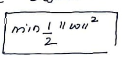 min 1/2 ||w||²